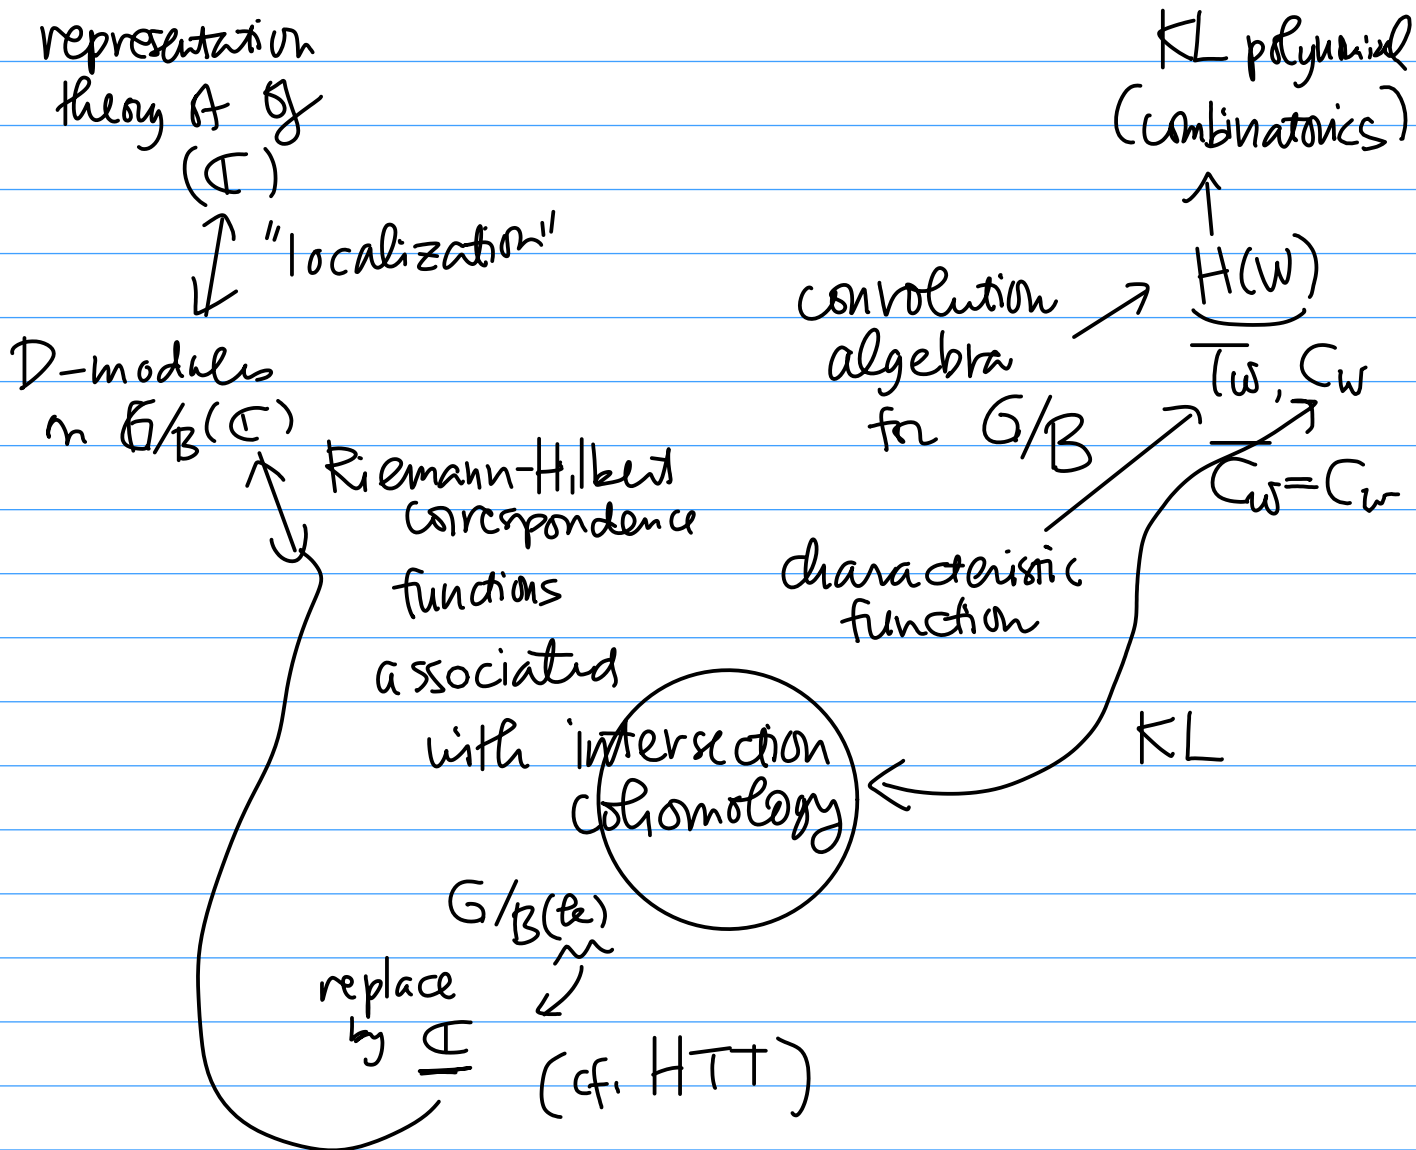 representation
theory of g
(ℂ)
"localization"
D-modules
on G/B(ℂ)
Riemann-Hilbert
correspondence
functions
associated
with intersection
cohomology
G/B(k)
replace
by ℂ
(cf. HTT)
KL polynomial
(combinatorics)
H(W)
convolution
algebra
for G/B
T_w, C_w
C̅_w = C_w
characteristic
function
KL